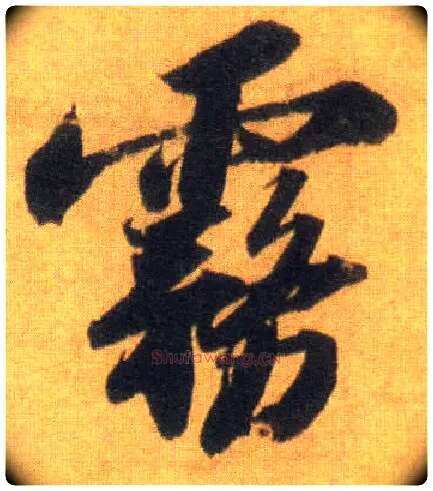 霧
Shufawang.cn